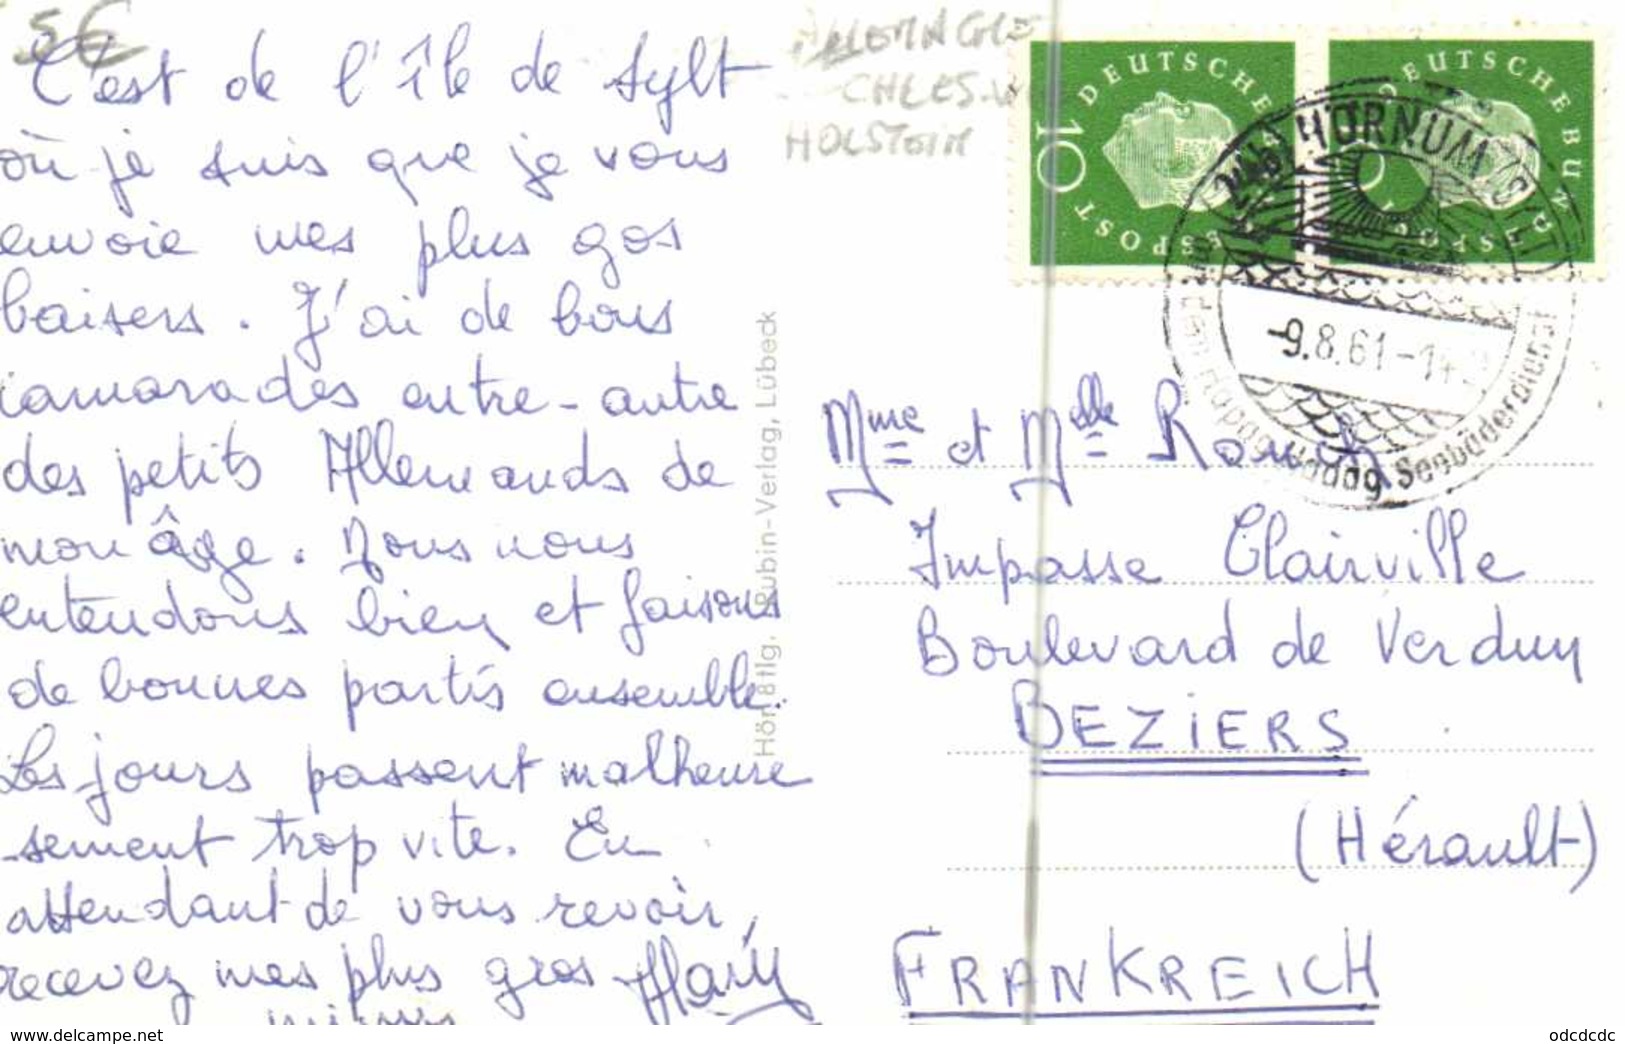 5€
C'est de l'île de Sylt
où je suis que je vous
envoie mes plus gos
baisers. J'ai de bons
camarades entre-autre
des petits Allemands de
mon âge. Nous nous
entendons bien et faisons
de bonnes partis ensemble.
Les jours passent malheure
-sement trop vite. En
attendant de vous revoir,
recevez mes plus gros
HOLSTEIN
Rubin-Verlag, Lübeck
DEUTSCHE BUNDESPOST
10
DEUTSCHE BUNDESPOST
10
HÖRNUM (SYLT)
-9.8.61-14
mit dem Hapag-Hadag Seebäderdienst
Mme et Melle
Impasse Clairville
Boulevard de Verdun
BEZIERS
(Hérault)
FRANKREICH
www.delcampe.net
odcdcdc